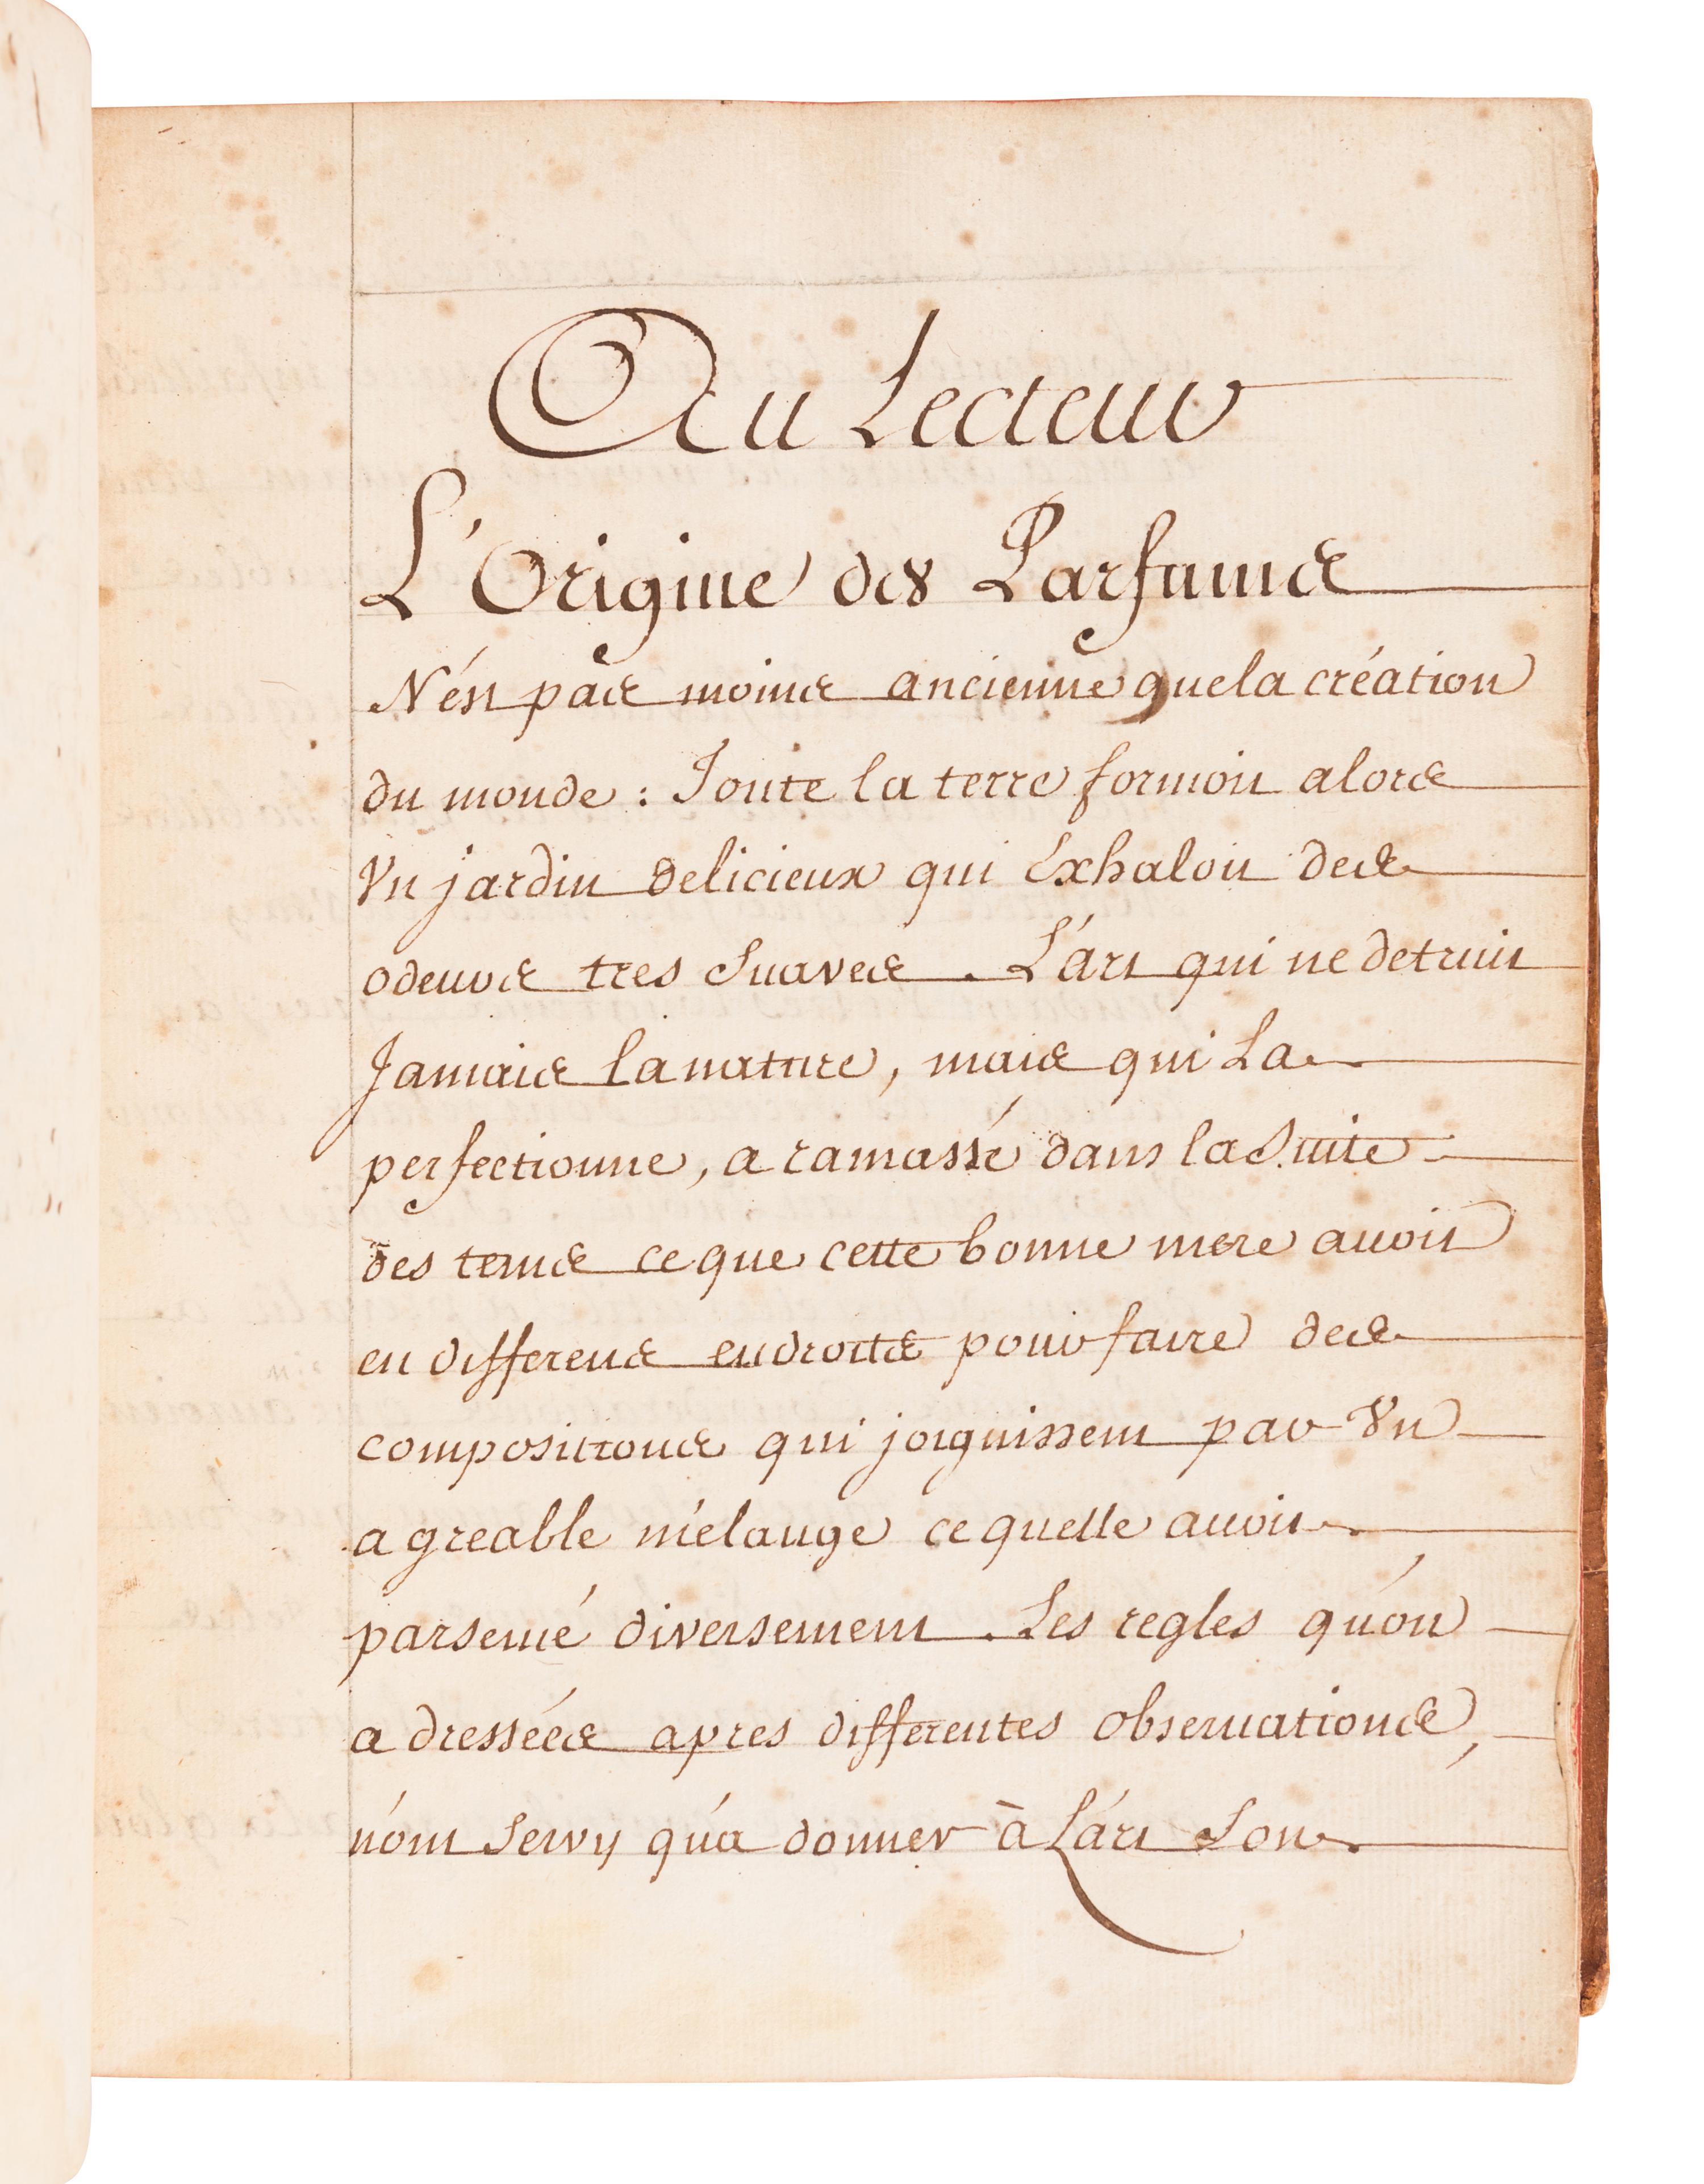 Au Lecteur
L'Origine des Parfums
N'ést pas moins ancienne que la création
du monde : Toute la terre formoit alors
Vn jardin delicieux qui éxhaloit des
odeurs tres suaves. L'art qui ne detruit
Jamais la nature, mais qui La
perfectionne, a ramassé dans la Suite
des tems ce que cette bonne mere auoit
en differens endroits pour faire des
compositions qui joignissent par Vn
agreable mélange ce quelle auoit
parsemé diversement. Les regles qu'on
a dressées apres differentes observations,
n'ont servy qu'a donner à L'art Son